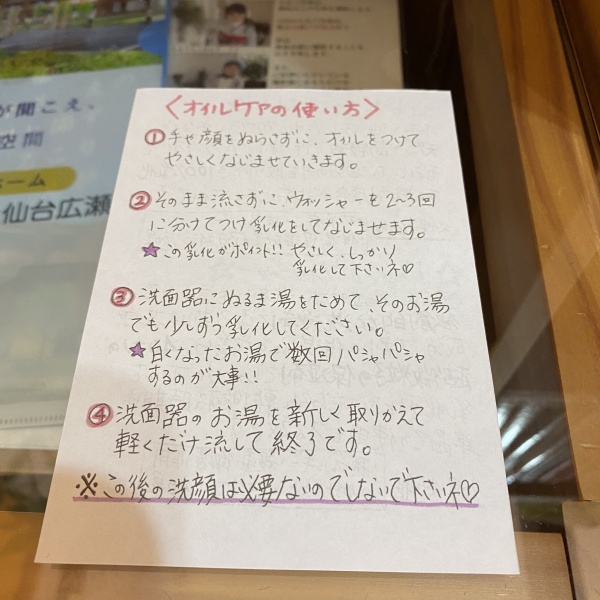 〈オイルケアの使い方〉
①手や顔をぬらさずに、オイルをつけて
やさしくなじませていきます。
②そのまま流さずに、ウォッシャーを2〜3回
に分けてつけ乳化をしてなじませます。
★この乳化がポイント!! やさしく、しっかり
乳化して下さいネ♡
③洗面器にぬるま湯をためて、そのお湯
でも少しずつ乳化してください。
★白くなったお湯で数回パシャパシャ
するのが大事!!
④洗面器のお湯を新しく取りかえて
軽くだけ流して終了です。
※この後の洗顔は必要ないのでしないで下さいネ♡
が聞こえ、
空間
ホーム
仙台広瀬